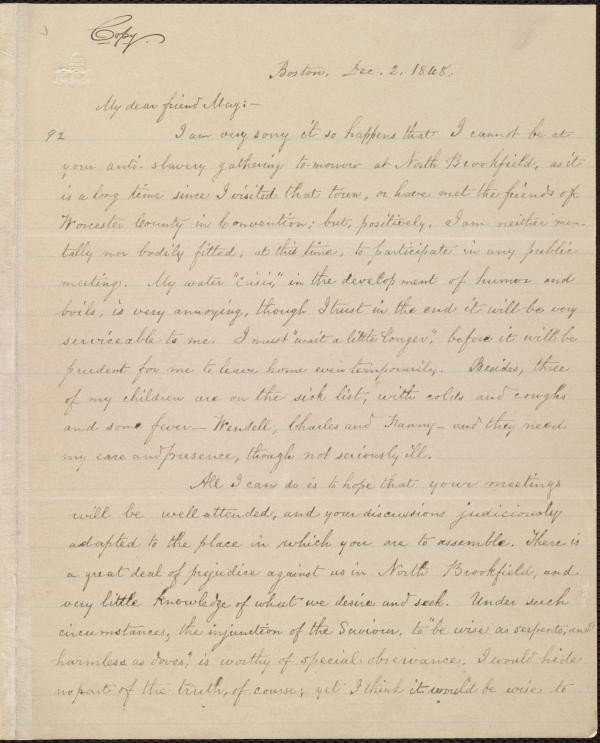 Copy.
Boston, Dec. 2, 1848.
My dear friend May:—
92
I am very sorry it so happens that I cannot be at
your anti-slavery gathering to-morrow at North Brookfield, as it
is a long time since I visited that town, or have met the friends of
Worcester County in Convention; but, positively, I am neither men-
tally nor bodily fitted, at this time, to participate in any public
meeting. My water "crisis," in the development of humor and
boils, is very annoying, though I trust in the end it will be very
serviceable to me. I must "wait a little longer," before it will be
prudent for me to leave home even temporarily. Besides, three
of my children are on the sick list, with colds and coughs
and some fever — Wendell, Charles and Fanny — and they need
my care and presence, though not seriously ill.
All I can do is to hope that your meetings
will be well attended, and your discussions judiciously
adapted to the place in which you are to assemble. There is
a great deal of prejudice against us in North Brookfield, and
very little knowledge of what we desire and seek. Under such
circumstances, the injunction of the Saviour, to "be wise as serpents, and
harmless as doves," is worthy of special observance. I would hide
no part of the truth, of course; yet I think it would be wise to